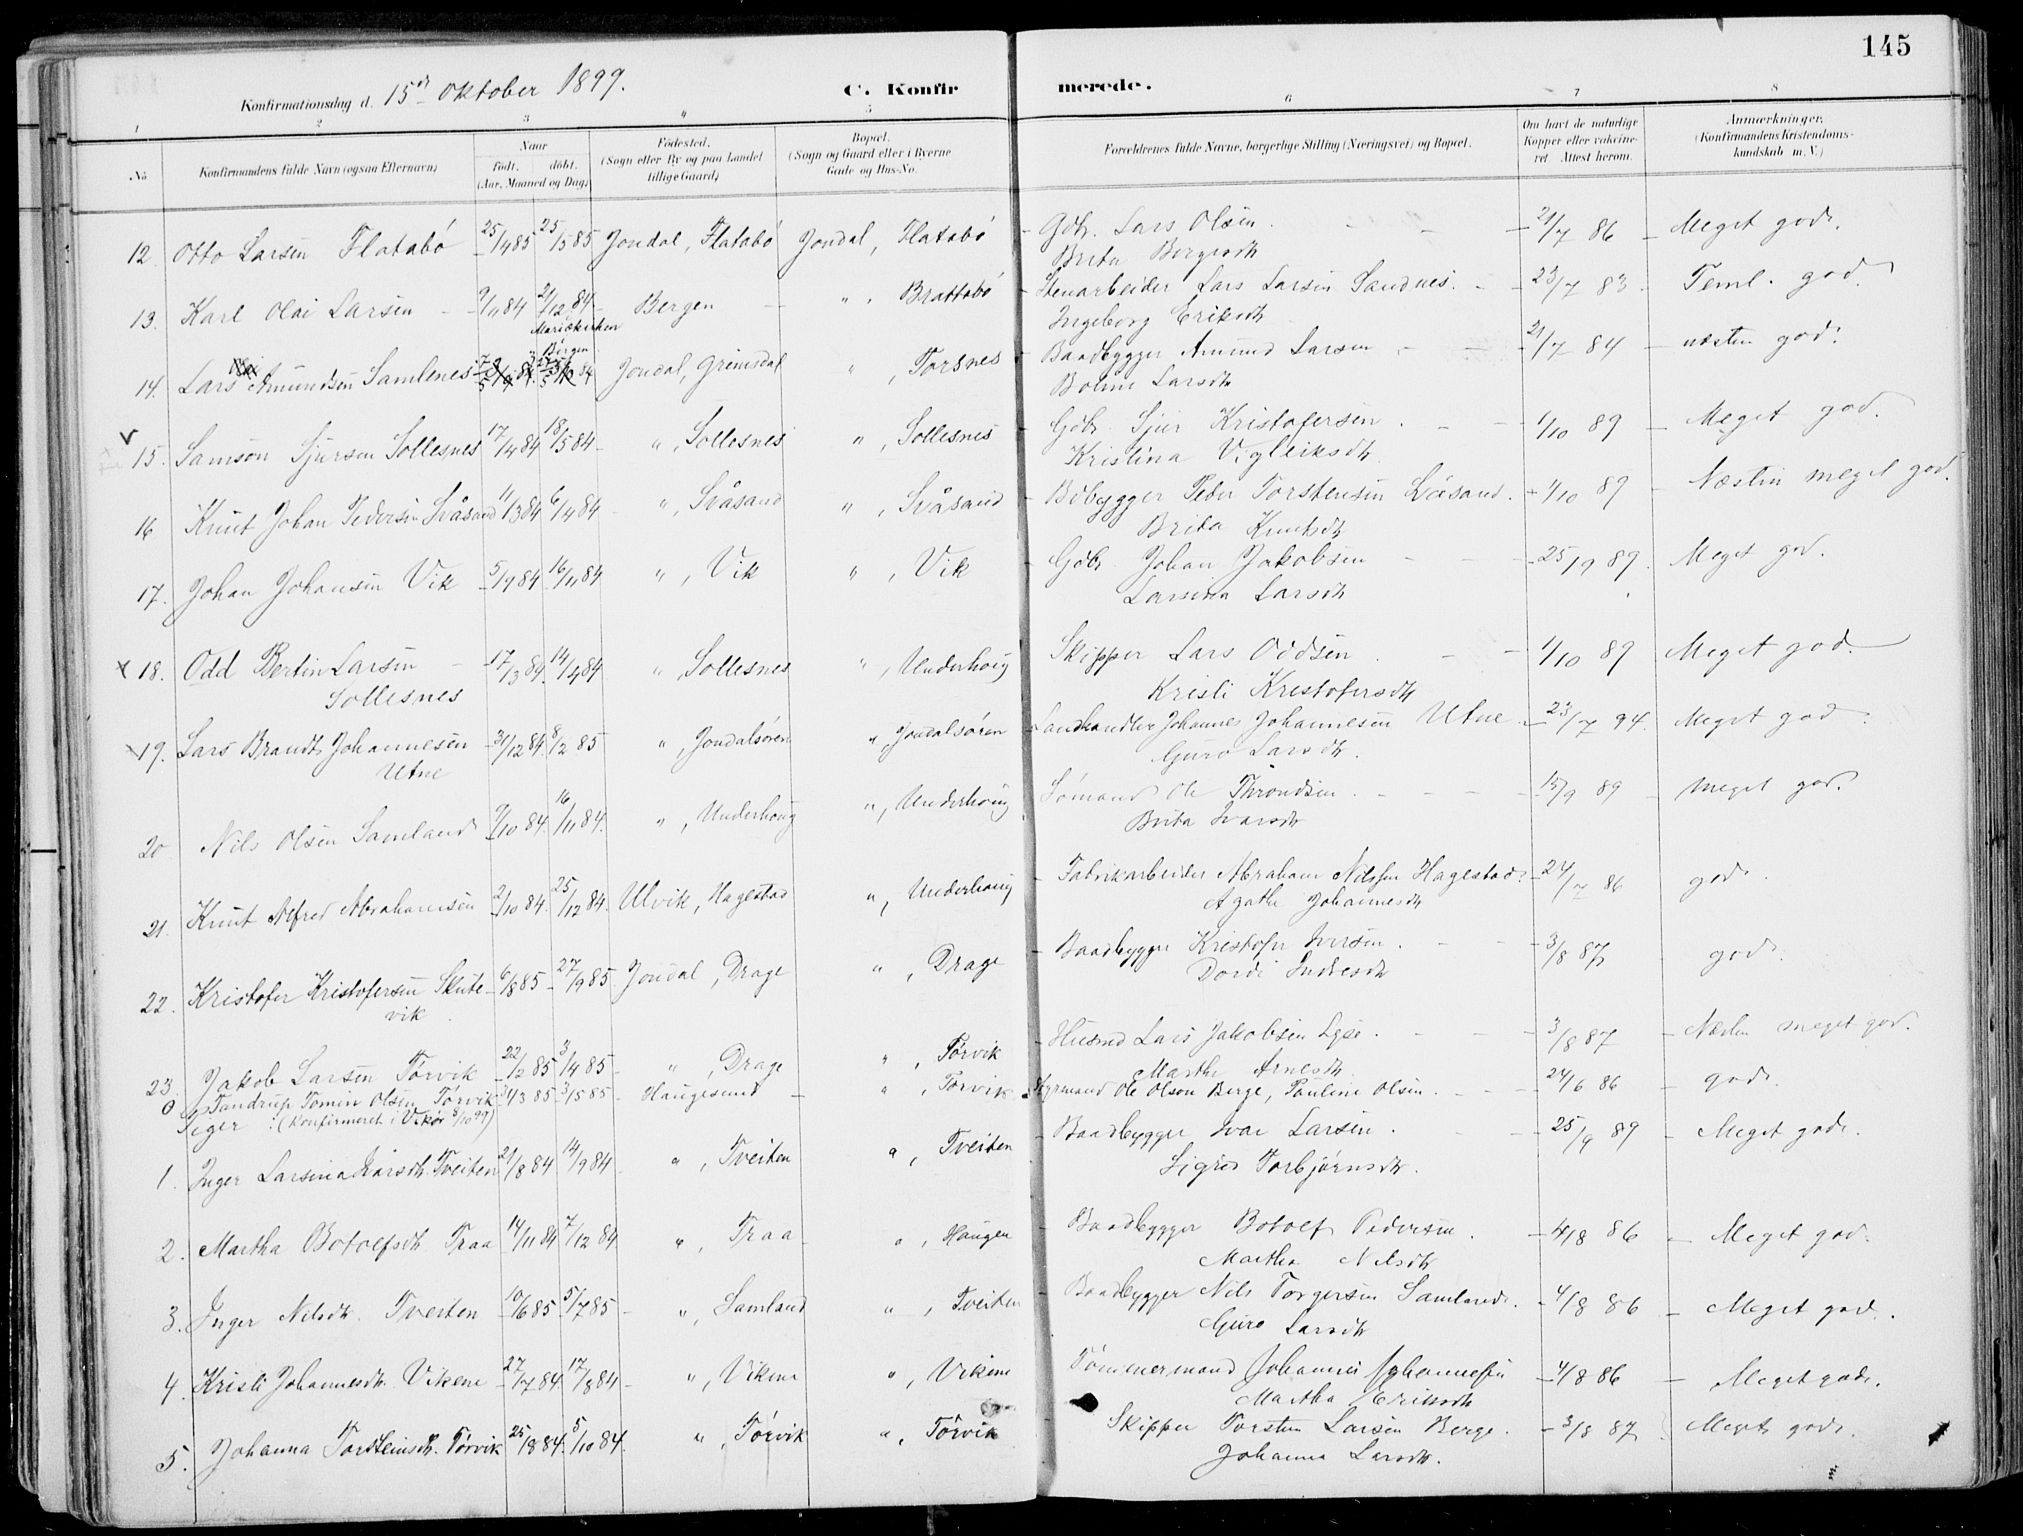 145
Konfirmationsdag d. 15de Oktober 1899.
C. Konfirmerede.
1 2 3 4 5 6 7 8
No
Konfirmandens fulde Navn (ogsaa Efternavn)
Naar
født. døbt.
(Aar, Maaned og Dag)
Fødested.
(Sogn eller By og paa Landet
tillige Gaard)
Bopæl.
(Sogn og Gaard eller i Byerne
Gade og Hus-No.
Forældrenes fulde Navne, borgerlige Stilling (Næringsvei) og Bopæl.
Om havt de naturlige
Kopper eller vakcine-
ret. Attest herom.
Anmærkninger.
(Konfirmandens Kristendoms-
kundskab m. V.)
12. Otto Larsen Flatabø 25/4 85 25/5 85 Jondal, Flatabø Jondal, Flatabø Gdbr. Lars Olsen 21/7 86 Meget god.
Brita Borgesdtr
13. Karl Olai Larsen 9/11 84 21/12 84 Bergen " Brattabø Stenarbeider Lars Larsen Sandnes. 23/7 83 Teml. god.
Mariækirken Bergen
Ingeborg Eriksdtr
14. Lars Amundsen Samlenes Jondal, Grimsdal " , Torsnes Baadbygger Amund Larsen 21/7 84 næsten god.
Larsdtr
15. Samson Sjursen Sollesnes 17/4 84 18/5 84 " , Sollesnes " , Sollesnes Gdbr. Sjur Kristofersen 1/10 89 Meget god.
Kristina Vigleiksdtr
16 Knut Johan Pedersen Svåsand 11/3 84 6/4 84 " , Svåsand " , Svåsand Bdbygger Peder Torstensen Svåsand. 1/10 89 Næsten meget god.
Brita Knutsdtr
17. Johan Johansen Vik 5/9 84 16/11 84 " , Vik " , Vik Gdbr. Johan Jakobsen 25/9 89 Meget god.
Larsina Larsdtr
x 18. Odd Bertin Larsen 17/3 84 14/4 84 " , Sollesnes " , Underhoug Skipper Lars Oddsen 1/10 89 Meget god.
Sollesnes
Kristi Kristofersdtr
19. Lars Brandt Johannesen 31/12 84 8/2 85 " , Jondalsøren " , Jondalsøren Landhandler Johannes Johannesen Utne 23/7 94. Meget god.
Utne
Guro Larsdtr.
20 Nils Olsen Samland 9/10 84. 16/11 84. " , Underhoug " , Underhoug Sømand Ole Throndsen. 15/9 89 Meget god.
Brita Ivarsdtr
21. Knut Alfred Abrahamsen 2/10 84. 25/12 84. Ulvik, Hagestad " , Underhoug Fabrikarbeider Abraham Nilssen Hagestad. 24/7 86 god.
Agathe Johannesdtr
22. Kristofer Kristofersen Skute- 6/8 85 27/9 85 Jondal, Drage " , Drage Baadbygger Kristofer Iversen. 3/8 87 god.
vik
Dordi Endresdtr
23. Jakob Larsen Tørvik 22/2 85 3/4 85 " , Drage " , Tørvik Husmd Lars Jakobsen Lyse. 3/8 87 Næsten meget god.
Marthe Arnesdtr
0 Tandrup Tomin Olsen Tørvik 3/3 85 3/5 85 Haugesund " , Tørvik Styrmand Ole Olson Berge, Pauline Olsen. 24/6 86 god.
: (Konfirmeret i Vikør 8/10 99)
1. Inger Larsina Ivarsdtr. Tveiten 21/8 84 14/9 84 " , Tveiten " , Tveiten Baadbygger Ivar Larsen. 25/9 89 Meget god.
Sigrid Torbjørnsdtr.
2. Martha Botolfsdtr Traa 14/11 84 7/12 84 " , Traa " , Haugen Baadbygger Botolf Pedersen. 4/8 86 Meget god.
Martha Nilsdtr
3. Inger Nilsdtr. Tveiten 10/6 85 5/7 85 " , Samland " , Tveiten Baadbygger Nils Torgersen Samland. 4/8 86 Meget god.
Guro Larsdtr
4. Kristi Johannesdtr. Vikene 27/7 84. 17/8 84 " , Vikene " , Vikene Tømmermand Johannes Johannessen 4/8 86 Meget god.
Martha Eriksdtr
5. Johanna Torsteinsdtr. Tørvik 25/8 84. 5/10 84. " , Tørvik " , Tørvik Skipper Torsten Larsen Berge. 3/8 87 Meget god.
Johanna Larsdtr.